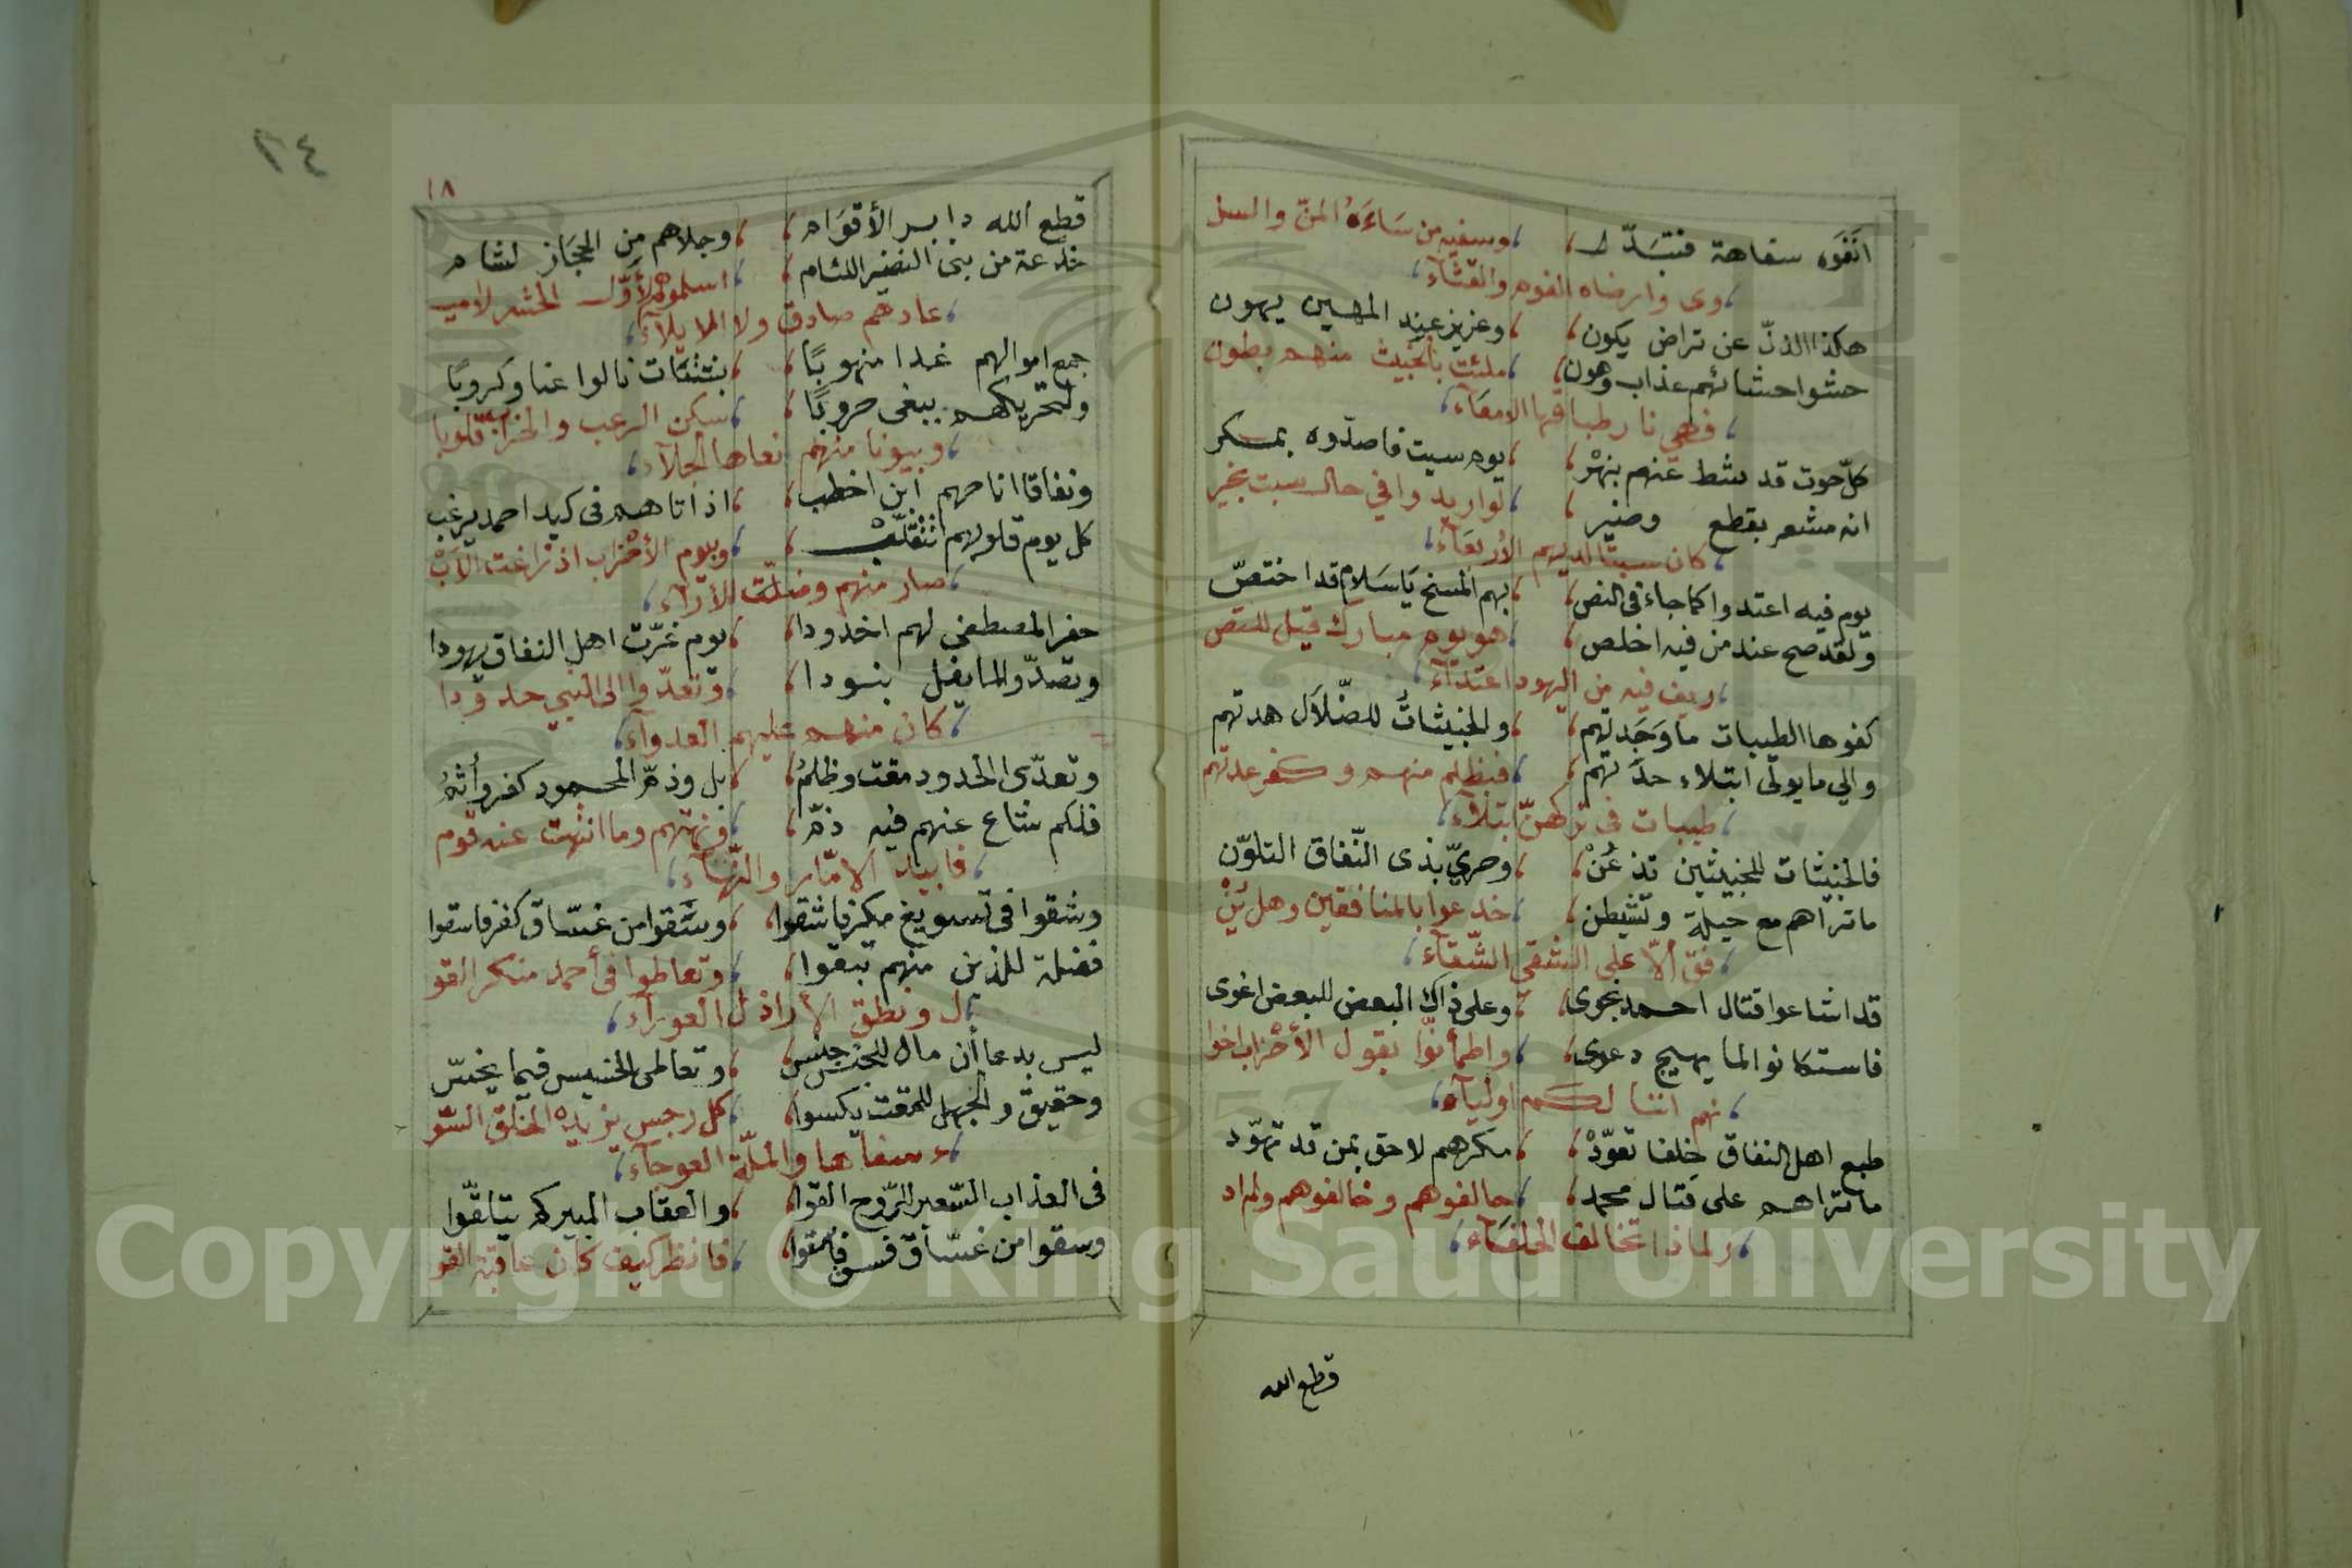 انفوه سفاهة فتبدّل ، وسفيه من ساءه المنّ والسل
وى وارضاه الفوم والقثآء
هكذا الذلّ عن تراض يكون ، وعزيز عند المهين يهون
حشوا حشائهم عذاب وهون ، ملئت بالخبيث منهم بطون
فهي نار طباقها الامعآء
كلّ حوت قد شط عنهم بنهْر ، يوم سبت فاصدّوه بمسكر
انه مشعر بقطع وضير ، لواريد وافي حال سبت بخير
كان سبتا لديهم الأربعآء
يوم فيه اعتدوا كما جاء فى النص ، بهم المسخ يا سلام قد اختصّ
ولقد صح عند من فيه اخلص ، هو يوم مبارك قيل للتص
ريف فيه من اليهود اعتدآء
كفوها الطيبات ما وجدتهم ، والخبيثاتُ للضّلاَل هدتهم
والي ما يولى ابتلاء حدّتهم ، فبظلم منهم وكفر عدتهم
طيبات في تركهنّ ابتلاء
فالخبيثات للخبيثين تذعنْ ، وحريّ بذى النّفاق التلوّن
ما تراهم مع حيلة وتشيطن ، خدعوا بالمنافقين وهل يُنْ
فق ألاّ على الشقي الشّقآء
قد اشاعوا قتال احمد نجوى ، وعلى ذاك البعض للبعض اغوى
فاستكانوا لما يهيج دعوى ، واطمأنّوا بقول الأحزاب اخوا
نهم اننا لكم اوليآء
طبع اهل النفاق خلفا تعوّدْ ، مكرهم لاحق بمن قد تهوّد
ما تراهم على قتال محمد ، حالفوهم وخالفوهم ولم اد
ر لماذا تخالف الحلفآء
قطع الله
٢٤
١٨
قطع الله دابر الأقوام ، وجلاهم من الحجاز لشام
خدعة من بنى النضير اللئام ، اسلموهم لأوّل الحشر لاميـ
عادهم صادق ولا الايلآء
جمع اموالهم غدا منهوبًا ، بشتات نالوا عنا وكروبًا
ولتحريكهم يبغى حروبًا ، سكن الرعب والخراب قلوبا
وبيوتا منهم نعاها الجلآء
ونفاقا اتاحهم ابن اخطب ، اذ اتاهم فى كيد احمد يرغب
كل يوم قلوبهم تتقلّب ، وبيوم الأحزاب اذ زاغت الأبْ
صار منهم وضلّت الآرآء
حفر المصطفى لهم اخدودا ، يوم غرّت اهل النفاق يهودا
وتصدّوا لما يفل بنودا ، وتعدّوا الى النبي حدودا
كان منهم عليهم العدوآء
وتعدّى الحدود مقت وظلمُ ، بل وذمّ المحمود كفر وأثمُ
فلكم شاع عنهم فيه ذمّ ، ونهتهم وما انتهت عنه قوم
فابيد الامّار والنّهآء
وشقوا فى تسويغ مكر فاشقوا ، وسقوا من غسّاق كفر فاسقوا
فضلة للذين منهم تبقوا ، وتعاطوا فى أحمد منكر القو
ل ونطق الأراذل العورآء
ليس بدعا أن مال للجنس جنس ، وتعاطى الخسيس فيما يخسّ
وحقيق والجهل للمقت يكسوا ، كل رجس يزيده الخلق السّو
ء سفاها والملّة العوجآء
فى العذاب السّعير للرّوح القوا ، والعقاب المبير كم يتلقّوا
وسقوا من غسّاق فسق فاشقوا ، فانظر كيف كان عاقبة القو
Copyright © King Saud University
1957